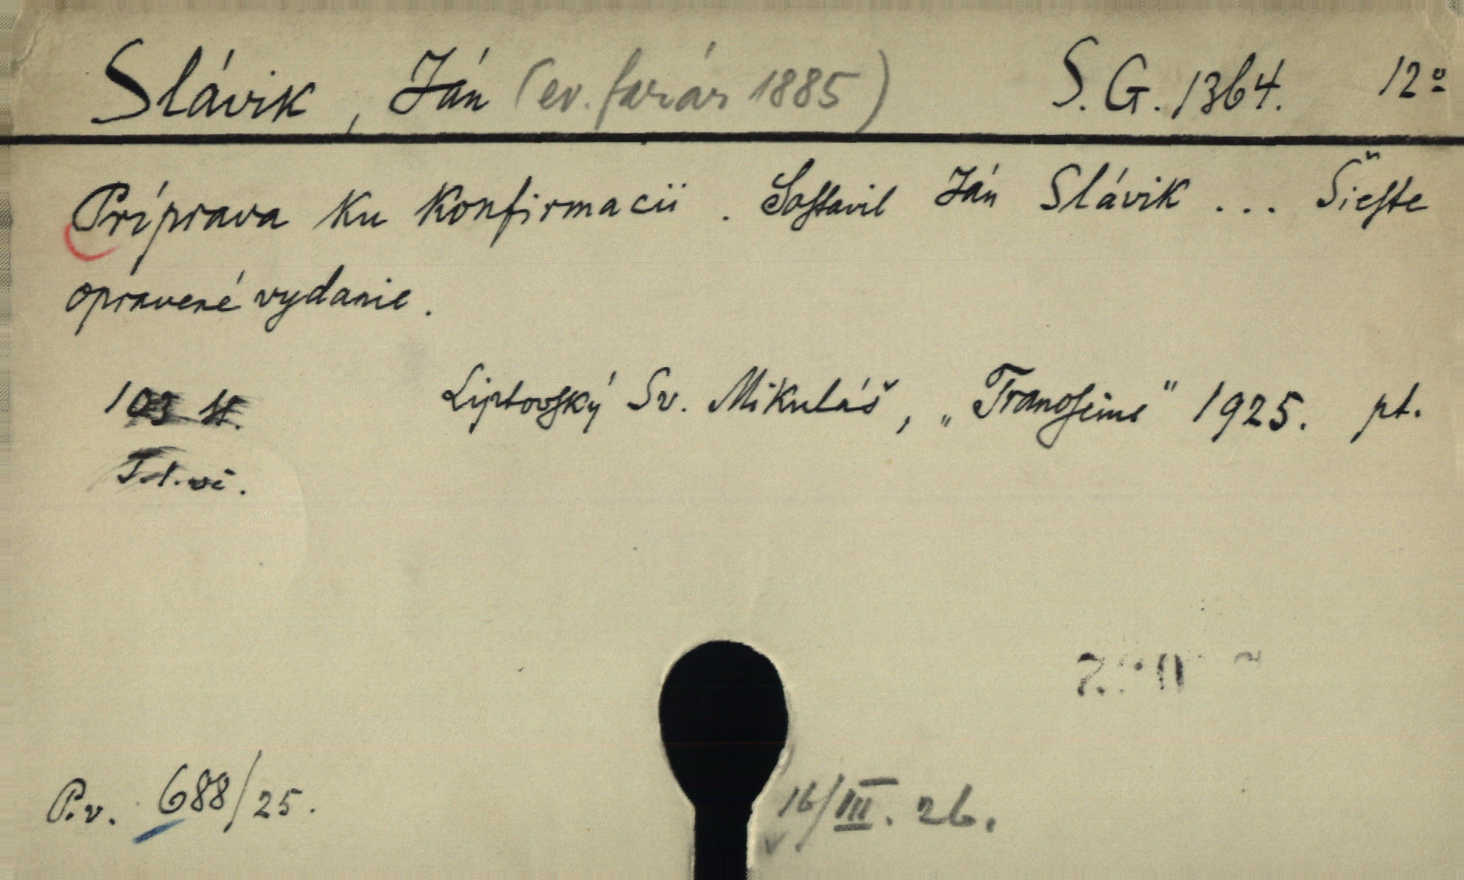 Slávik, Ján (ev. farár 1885) S. G. 1364. 12º
Príprava ku konfirmacii. Sostavil Ján Slávik ... Šieste
opravené vydanie.
103 st. Liptovský Sv. Mikuláš, „Tranoscius" 1925. pt.
P.v. 688/25. 16/III. 26.